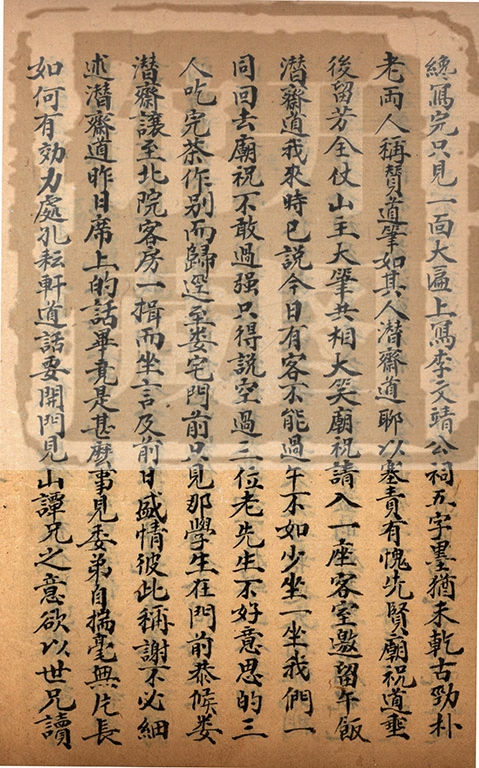 纔寫完只見一面大匾上寫李文靖公祠五字墨猶未乾古勁朴
老兩人稱贊道筆如其人潛齋道聊以塞責有愧先賢廟祝道垂
後留芳全仗山主大筆共相大笑廟祝請入一座客室邀留午飯
潛齋道我來時已說今日有客不能過午不如少坐一坐我們一
同回去廟祝不敢過强只得說空過三位老先生不好意思的三
人吃完茶作別而歸逕至娄宅門前只見那學生在門前恭候娄
潛齋讓至北院客房一揖而坐言及前日盛情彼此稱謝不必細
述潛齋道昨日席上的話畢竟是甚麽事見委弟自揣毫無片長
如何有効力處孔耘軒道話要開門見山譚兄之意欲以世兄讀